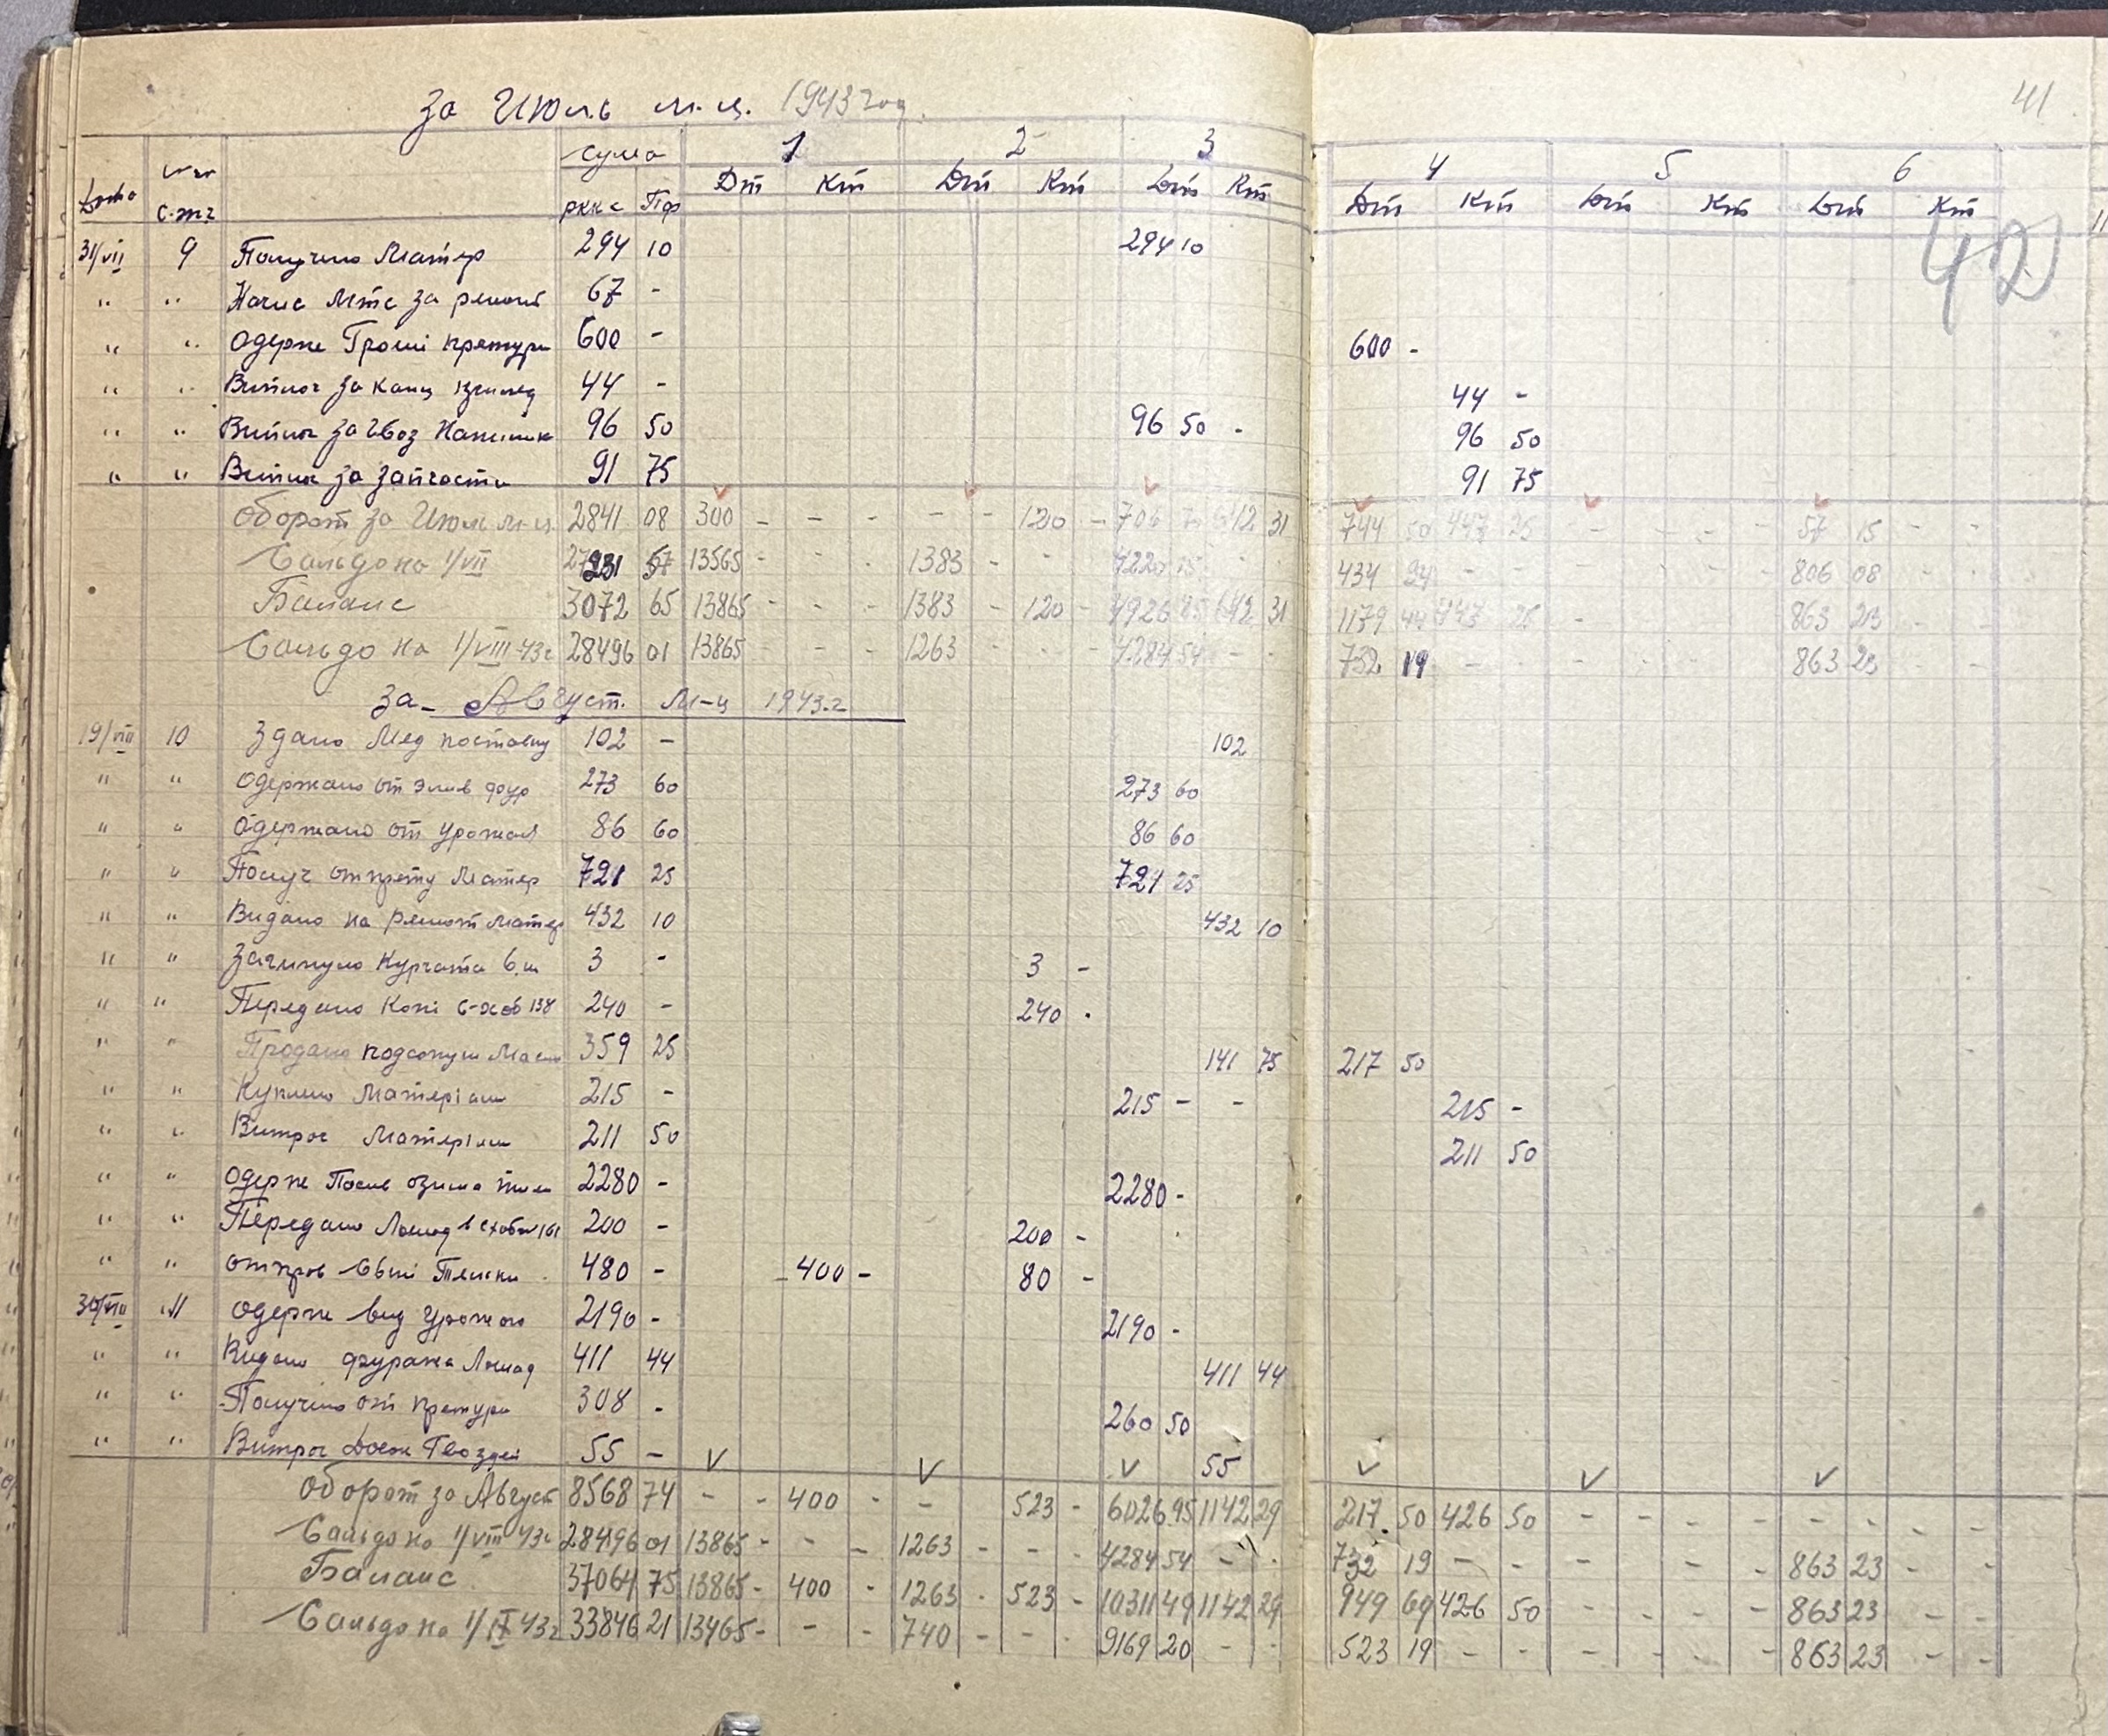 за Июль м-ц. 1943 год.
41
42
сума 1 2 3 4 5 6
Дата с-тг рккс Пф Дт Кт Дт Кт Дт Кт Дт Кт Дт Кт Дт Кт
31/VII 9 Получено Матер 294 10 294 10
" " Начис Мтс за ремонт 67 -
" " Одерже Гроші претури 600 - 600 -
" " Виплоч за канц 44 - 44 -
" " Виплоч за гвоз 96 50 96 50 - 96 50
" " Виплоч за запчасти 91 75 91 75
Оборот за Июль м-ц 2841 08 300 - - - - - 120 - 706 642 31 744 50 447 25 - - - - 57 15 - -
Сальдо на 1/VII 57 13565 - - - 1383 - - 4220 15 - - 434 94 - - - - - - 806 08 - -
Баланс 3072 65 13865 - - - 1383 - 120 - 4926 85 642 31 1179 44 447 25 - - - 863 23 - -
Сальдо на 1/VIII 43г 28496 01 13865 - - - 1263 - - - 4284 54 - - 732 19 - - - - - - 863 23 - -
за - Август. м-ц 1943.г
19/VIII 10 Здано Мед поставку 102 - 102
" " Одержано от фур 273 60 273 60
" " Одержано от урожая 86 60 86 60
" " Получ от прету Матер 721 25 721 25
" " Видано на ремонт матер 432 10 432 10
" " Загинуло Курчата 6 ш 3 - 3 -
" " Передано Коні с-хоб 138 240 - 240 -
" " Продано подсолнуш Масло 359 25 141 75 217 50
" " Куплено Матеріали 215 - 215 - - 215 -
" " Витрач Матеріали 211 50 211 50
" " Одерже Посів озима 2280 - 2280 -
" " Передано Лошад в схобщ 161 200 - 200 -
" " отпров Свині 480 - 400 - 80 -
30/VIII 11 Одерже від Урожаю 2190 - 2190 -
" " Видано фуража Лошад 411 44 411 44
" " Получено от претури 308 - 260 50
" " Витрач Гвоздей 55 - 55
Оборот за Август 8568 74 - - 400 - - 523 - 6026 95 1142 29 217 50 426 50 - - - - - - - -
Сальдо на 1/VIII 43г 28496 01 13865 - - - 1263 - - - 4284 54 - - 732 19 - - - - - 863 23 - -
Баланс 37064 75 13865 - 400 - 1263 - 523 - 10311 49 1142 29 949 69 426 50 - - - - 863 23 - -
Сальдо на 1/IX 43г 33846 21 13465 - - - 740 - - - 9169 20 - - 523 19 - - - - - - 863 23 - -